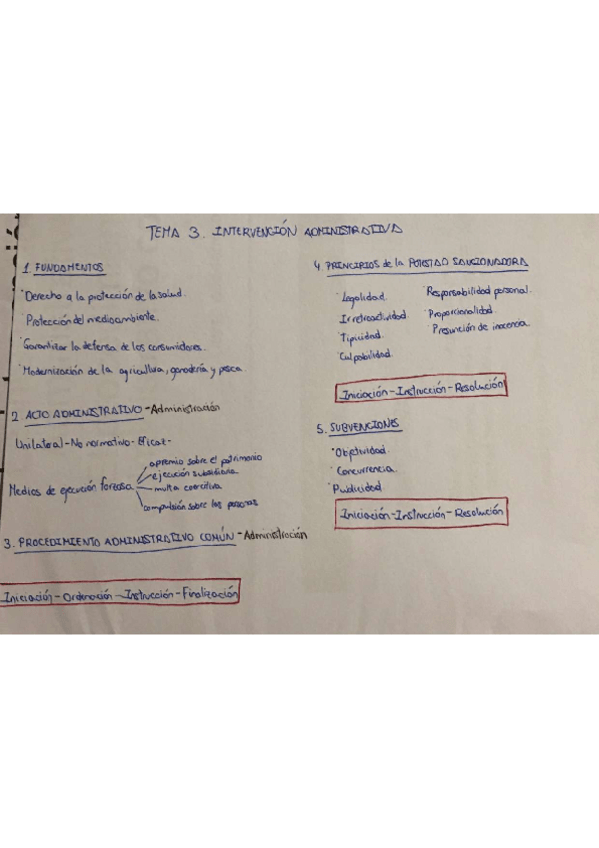 TEMA 3. INTERVENCIÓN ADMINISTRATIVA
1. FUNDAMENTOS
·Derecho a la protección de la salud.
·Protección del medioambiente.
·Garantizar la defensa de los consumidores.
·Modernización de la agricultura, ganadería y pesca
2. ACTO ADMINISTRATIVO - Administración
Unilateral - No normativo - Eficaz -
Medios de ejecución forzosa
apremio sobre el patrimonio
ejecución subsidiaria
multa coercitiva
compulsión sobre las personas
3. PROCEDIMIENTO ADMINISTRATIVO COMÚN - Administración
Iniciación - Ordenación - Instrucción - Finalización
4. PRINCIPIOS de la POTESTAD SANCIONADORA
·Legalidad.
·Irretroactividad
·Tipicidad.
·Culpabilidad.
·Responsabilidad personal.
·Proporcionalidad.
·Presunción de inocencia.
Iniciación - Instrucción - Resolución
5. SUBVENCIONES
·Objetividad.
·Concurrencia.
·Publicidad.
Iniciación - Instrucción - Resolución